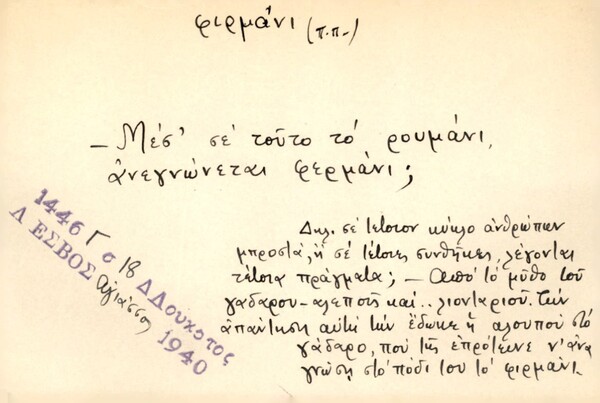 φιρμάνι (π.π.)
— Μέσ' σέ τοῦτο τό ρουμάνι,
ἀνεγνώνεται φερμάνι;
Δηλ. σέ τέτοιον κύκλο ἀνθρώπων
μπροστά, ἤ σέ τέτοιες συνθῆκες, λέγονται
τέτοια πράγματα; — Ἀπό τό μῦθο τοῦ
γάδαρου - αλεπούς καί.. λιονταριοῦ. Τήν
ἀπάντηση αὐτή τήν ἔδωκε ἡ αλουπού στό
γάδαρο, πού τῆς ἐπρότεινε ν' ἀνα
γνώση στό πόδι του τό φιρμάνι.
1446 Γ σ 18
ΛΕΣΒΟΣ Δ Δουκοτος
Ἁγιάσσος 1940